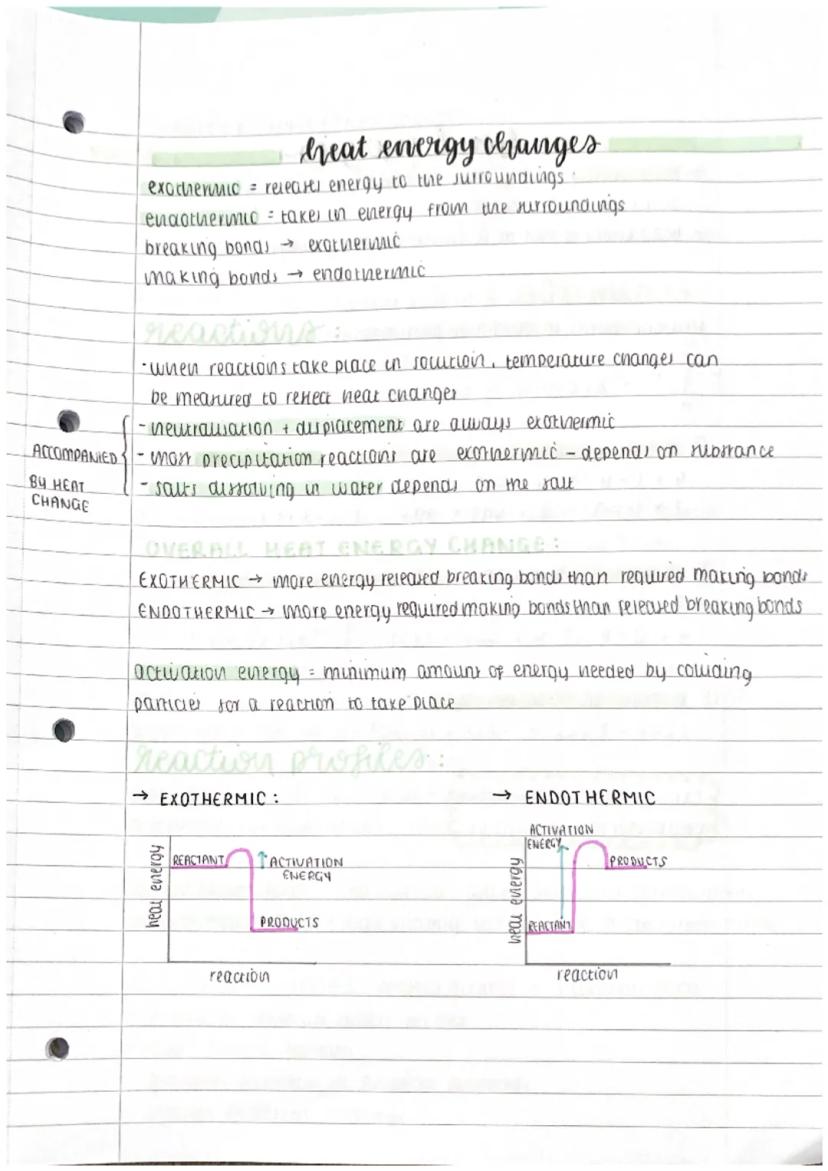 heat energy changes
exothermic = releases energy to the surroundings
endothermic = takes in energy from the surroundings
breaking bonds → exothermic
making bonds → endothermic
reactions :
- when reactions take place in solution, temperature changes can
be measured to reflect heat changes
ACCOMPANIED
BY HEAT
CHANGE
- neutralisation + displacement are always exothermic
- most precipitation reactions are exothermic – depends on substance
- salts dissolving in water depends on the salt
OVERALL HEAT ENERGY CHANGE :
EXOTHERMIC → more energy released breaking bonds than required making bonds
ENDOTHERMIC → more energy required making bonds than released breaking bonds
activation energy = minimum amount of energy needed by colliding
particles for a reaction to take place
Reaction profiles :
→ EXOTHERMIC :
heat energy
REACTANT
↑ ACTIVATION
ENERGY
PRODUCTS
reaction
→ ENDOTHERMIC
ACTIVATION
ENERGY
heat energy
PRODUCTS
REACTANT
reaction